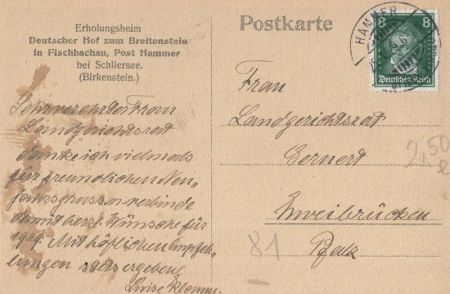 Erholungsheim
Deutscher Hof zum Breitenstein
in Fischbachau, Post Hammer
bei Schliersee.
(Birkenstein.)
Sehr verehrte Frau
Landgerichtsrat
danke ich vielmals
für freundlichen Neu-
jahrsgruss u. verbinde
damit herzl. Wünsche für
1929. Mit höflichen Empfeh-
lungen stets ergeben
Luise
Postkarte
HAMMER
8 8
Deutsches Reich
Frau
Landgerichtsrat
Gernert
Zweibrücken
Pfalz
2,50
81